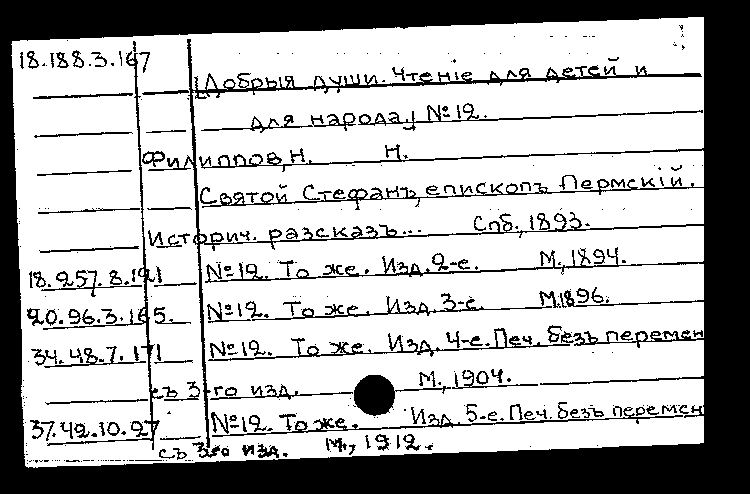 18.188.3.167
[Добрыя души. Чтенiе для детей и
для народа.] № 12.
Филиппов, Н. Н.
Святой Стефанъ, епископъ Пермскiй.
Историч. разсказъ... Спб., 1893.
18.257.8.121 № 12. То же. Изд. 2-е. М., 1894.
20.96.3.165. № 12. То же. Изд. 3-е. М. 1896.
34.48.7.171 № 12. То же. Изд. 4-е. Печ. безъ перемен
съ 3-го изд. М., 1904.
37.42.10.27 № 12. То же. Изд. 5-е. Печ. безъ перемен
съ 3-го изд. М., 1912.